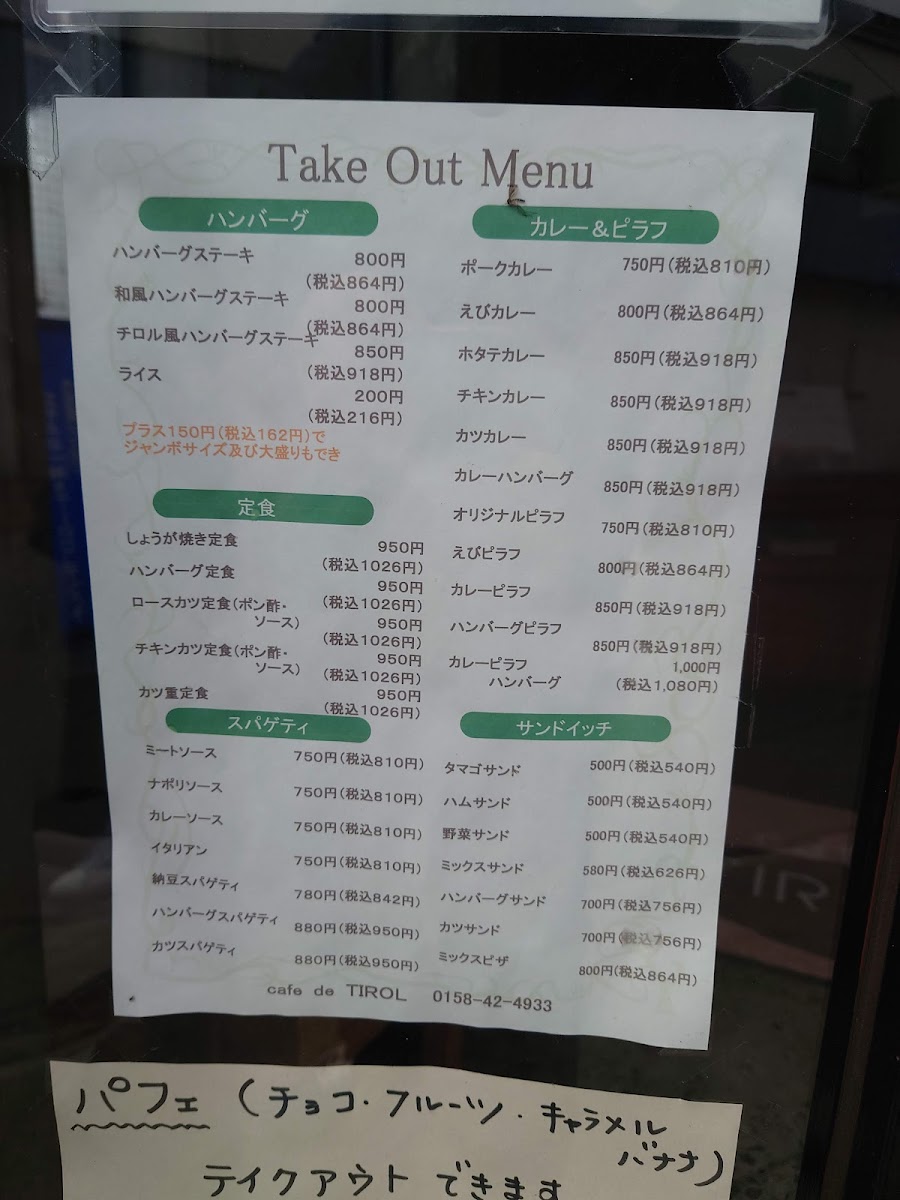 Take Out Menu
ハンバーグ
ハンバーグステーキ 800円
(税込864円)
和風ハンバーグステーキ 800円
(税込864円)
チロル風ハンバーグステーキ 850円
(税込918円)
ライス 200円
(税込216円)
プラス150円(税込162円)で
ジャンボサイズ及び大盛りもでき
定食
しょうが焼き定食 950円
(税込1026円)
ハンバーグ定食 950円
(税込1026円)
ロースカツ定食(ポン酢・ 950円
ソース) (税込1026円)
チキンカツ定食(ポン酢・ 950円
ソース) (税込1026円)
カツ重定食 950円
(税込1026円)
スパゲティ
ミートソース 750円(税込810円)
ナポリソース 750円(税込810円)
カレーソース 750円(税込810円)
イタリアン 750円(税込810円)
納豆スパゲティ 780円(税込842円)
ハンバーグスパゲティ 880円(税込950円)
カツスパゲティ 880円(税込950円)
カレー&ピラフ
ポークカレー 750円(税込810円)
えびカレー 800円(税込864円)
ホタテカレー 850円(税込918円)
チキンカレー 850円(税込918円)
カツカレー 850円(税込918円)
カレーハンバーグ 850円(税込918円)
オリジナルピラフ 750円(税込810円)
えびピラフ 800円(税込864円)
カレーピラフ 850円(税込918円)
ハンバーグピラフ 850円(税込918円)
カレーピラフ 1,000円
ハンバーグ (税込1,080円)
サンドイッチ
タマゴサンド 500円(税込540円)
ハムサンド 500円(税込540円)
野菜サンド 500円(税込540円)
ミックスサンド 580円(税込626円)
ハンバーグサンド 700円(税込756円)
カツサンド 700円(税込756円)
ミックスピザ 800円(税込864円)
cafe de TIROL 0158-42-4933
パフェ (チョコ・フルーツ・キャラメル
バナナ)
テイクアウト できます